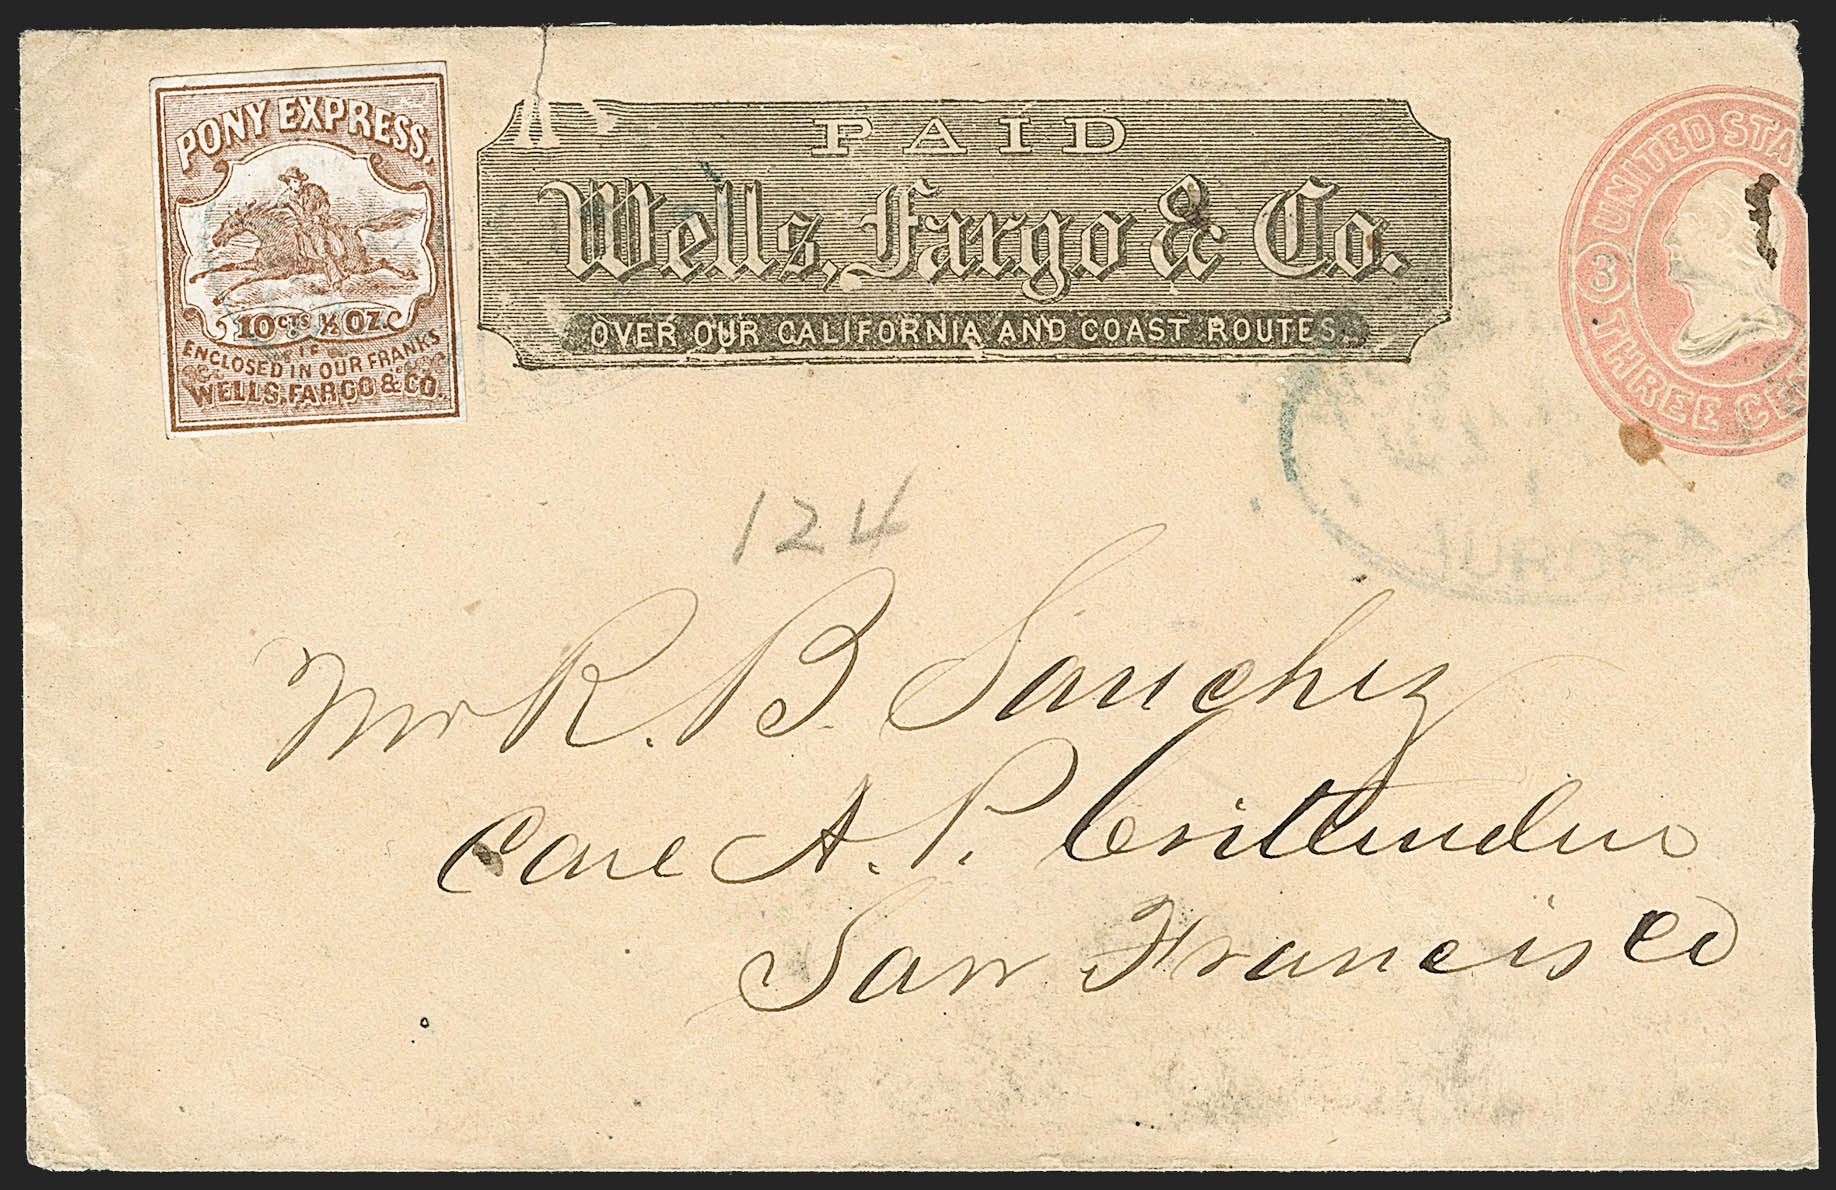 PONY EXPRESS.
10 CTS ½ OZ.
ENCLOSED IN OUR FRANKS
WELLS, FARGO & CO.
PAID
Wells, Fargo & Co.
OVER OUR CALIFORNIA AND COAST ROUTES.
UNITED STA
3
THREE CE
AURORA
124
Mr R. B. Sanchez
Care A. P. Crittenden
San Francisco